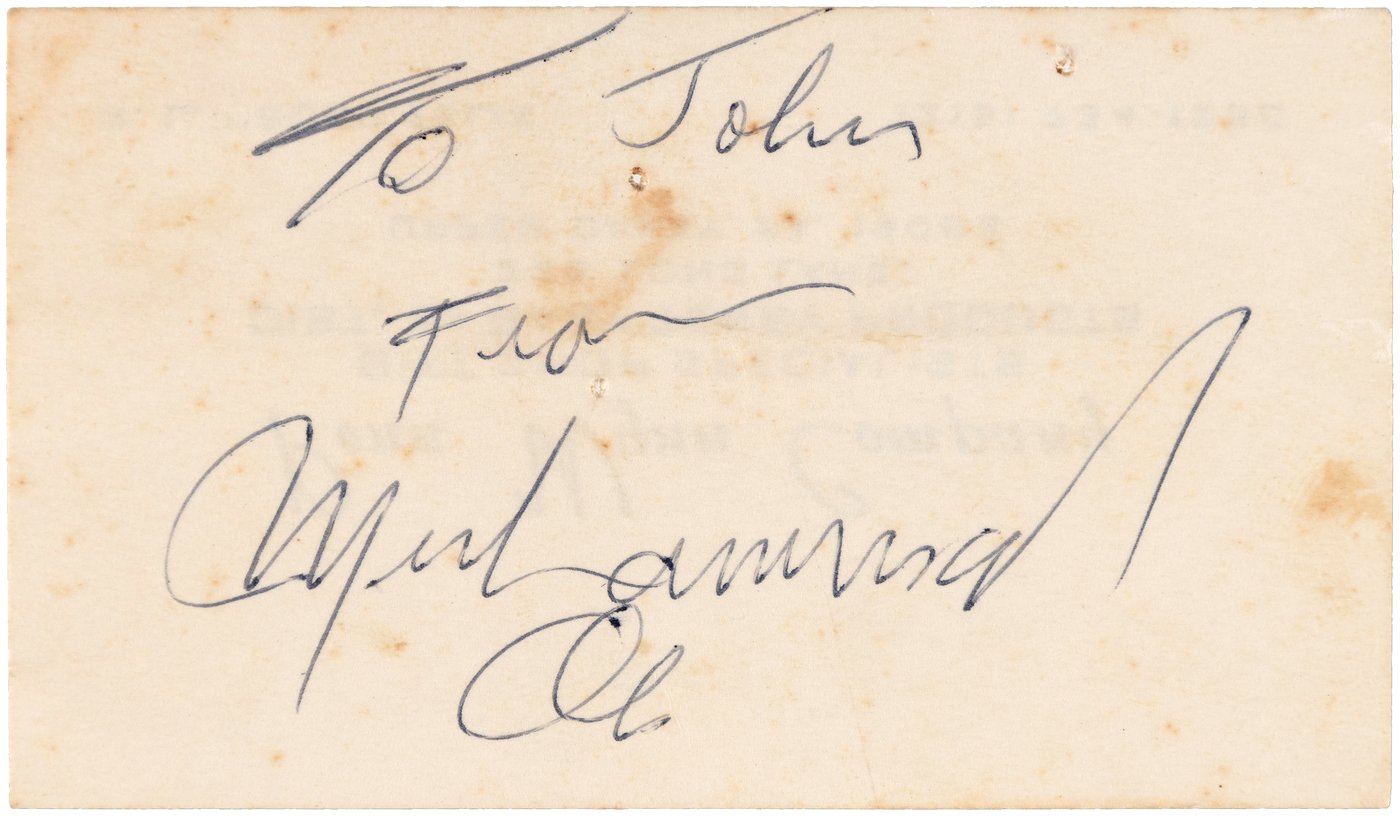 To John
From
Muhammad
Ali